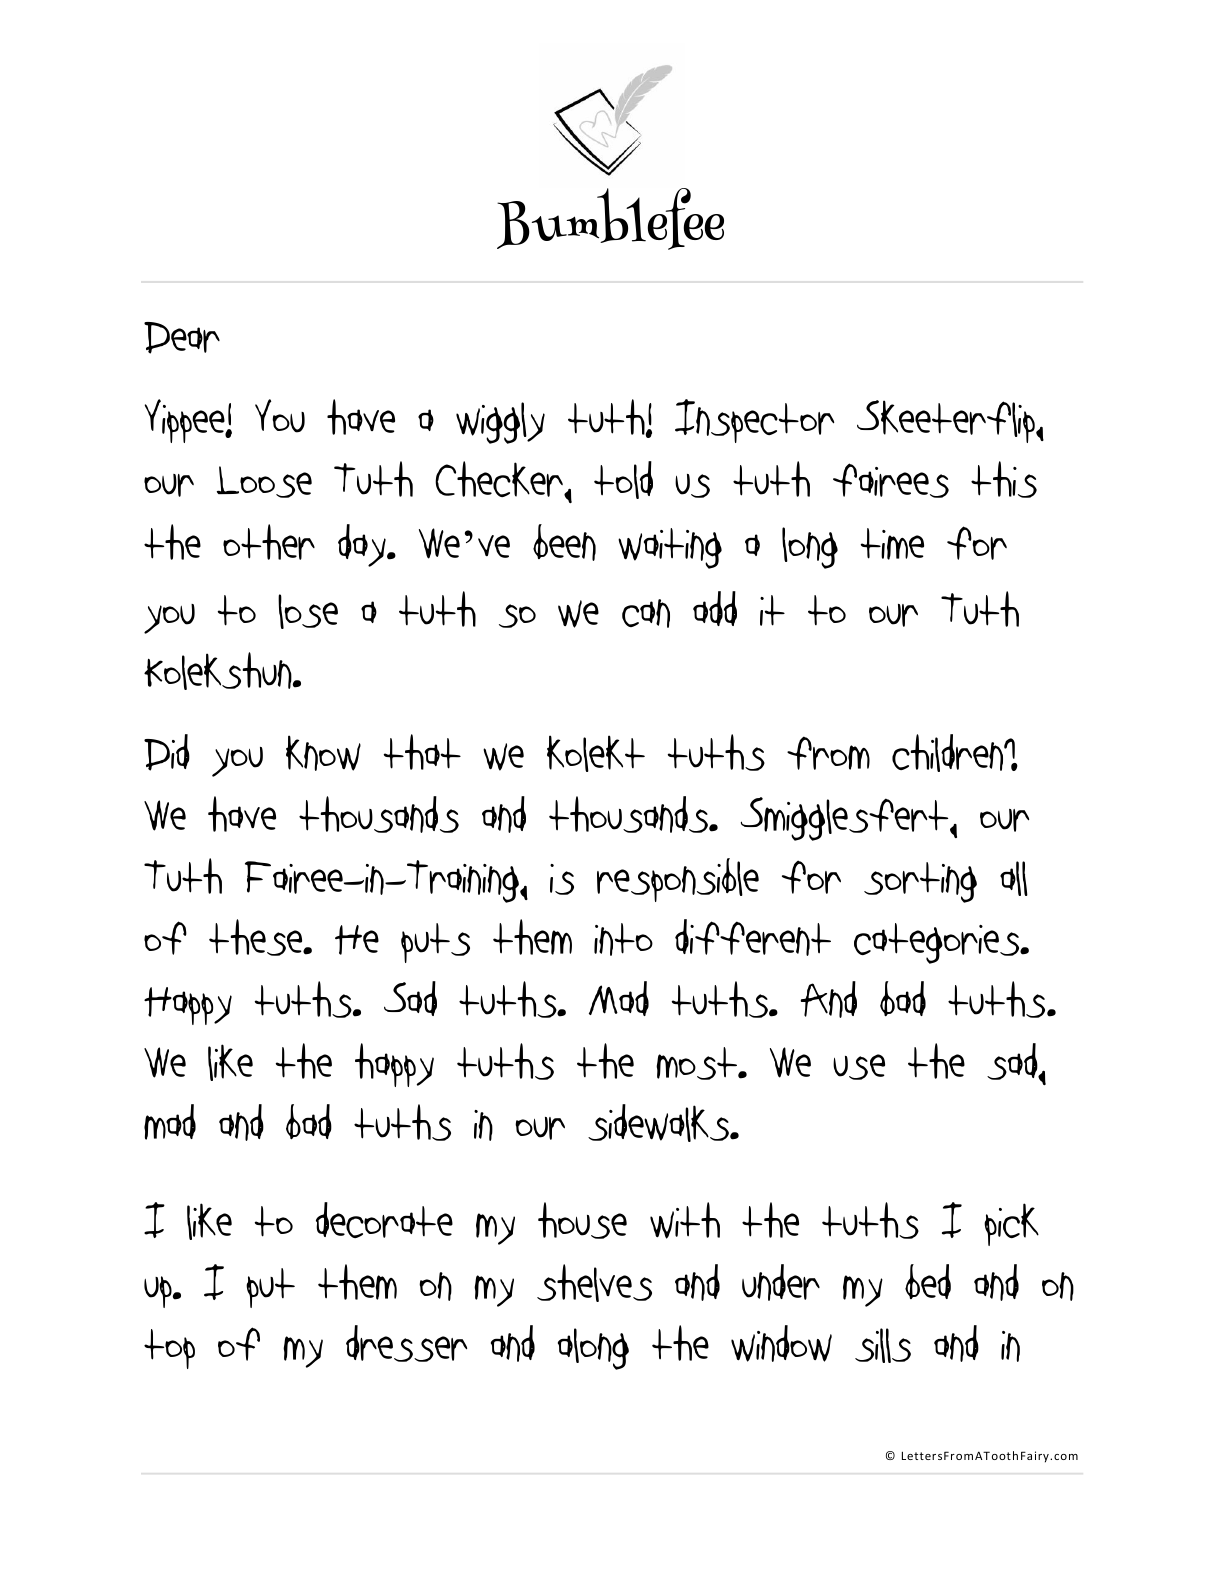 Bumblefee
Dear
Yippee! You have a wiggly tuth! Inspector Skeeterflip,
our Loose Tuth Checker, told us tuth fairees this
the other day. We've been waiting a long time for
you to lose a tuth so we can add it to our Tuth
Kolekshun.
Did you know that we kolekt tuths from children?
We have thousands and thousands. Smigglesfert, our
Tuth Fairee-in-Training, is responsible for sorting all
of these. He puts them into different categories.
Happy tuths. Sad tuths. Mad tuths. And bad tuths.
We like the happy tuths the most. We use the sad,
mad and bad tuths in our sidewalks.
I like to decorate my house with the tuths I pick
up. I put them on my shelves and under my bed and on
top of my dresser and along the window sills and in
© LettersFromAToothFairy.com